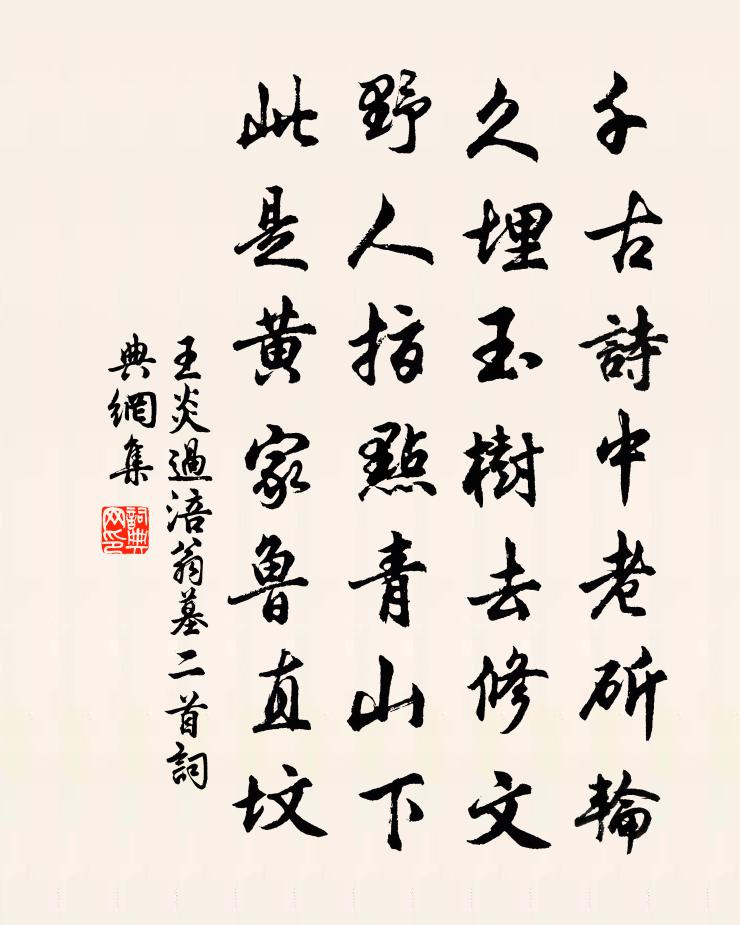 千古詩中老斫輪
久埋玉樹去修文
野人指點青山下
此是黃家魯直墳
王炎過涪翁墓二首詞
典網集
詞典
网印